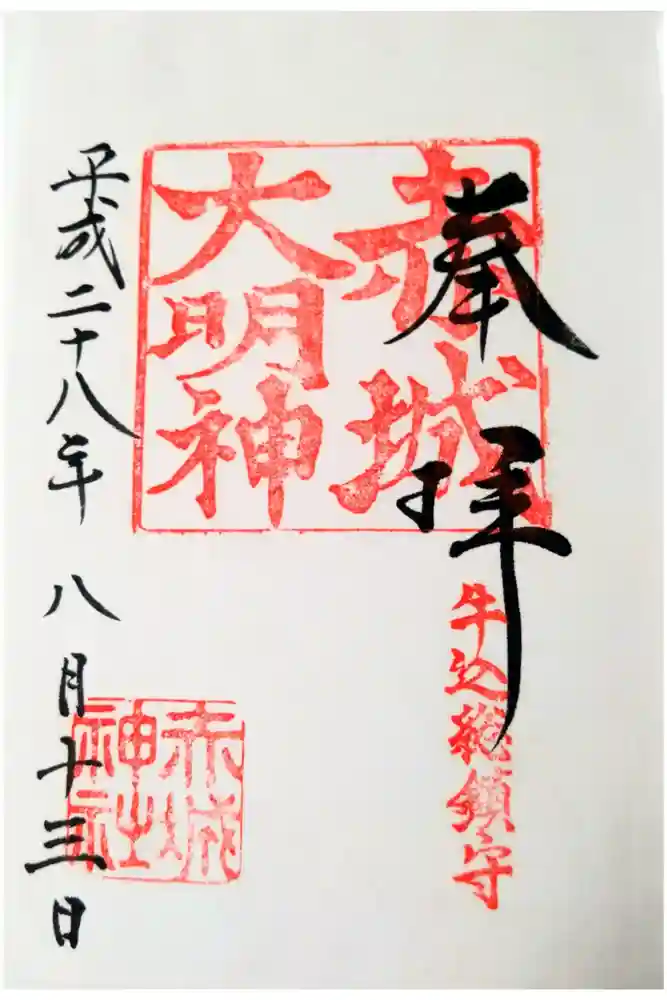 奉拝
牛込総鎮守
赤城
大明神
赤城
神社
平成二十八年 八月十三日